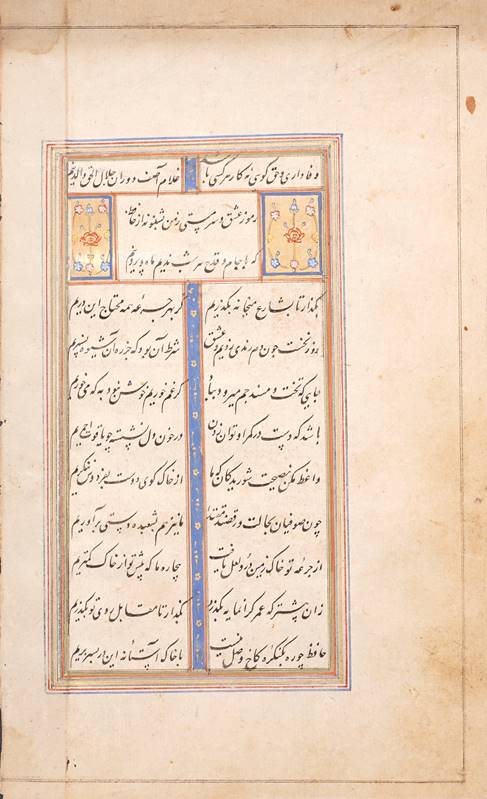 وفاداری و حق کوئی نه کار هر کسی باشد غلام آصف دوران جلال الحق والدینم
رموز عشق و سرمستی ز من بشنو نه از حافظ
که با جام و قدح هر شب ندیم ماه و پروینم
بگذار تا بشارع میخانه بگذریم کز بهر جرعه همه محتاج این دریم
روز نخست چون دم رندی زدیم و عشق شرط آن بود که جز ره آن شیوه نسپریم
جایی که تخت و مسند جم میرود بباد گر غم خوریم خوش نبود به که می خوریم
باشد که دست در کمر او توان زدن در خون دل نشسته چو یاقوت احمریم
واعظ مکن نصیحت شوریدگان که ما از خاک کوی دوست بفردوس ننگریم
چون صوفیان بحالت و رقصند مقتدا ما نیز هم بشعبده دستی برآوریم
از جرعه تو خاک زمین در و لعل یافت بیچاره ما که پیش تو از خاک کمتریم
زان پیشتر که عمر گرانمایه بگذرد بگذار تا مقابل روی تو بگذریم
حافظ چو ره بکنگره کاخ وصل نیست با خاک آستانه این در بسر بریم